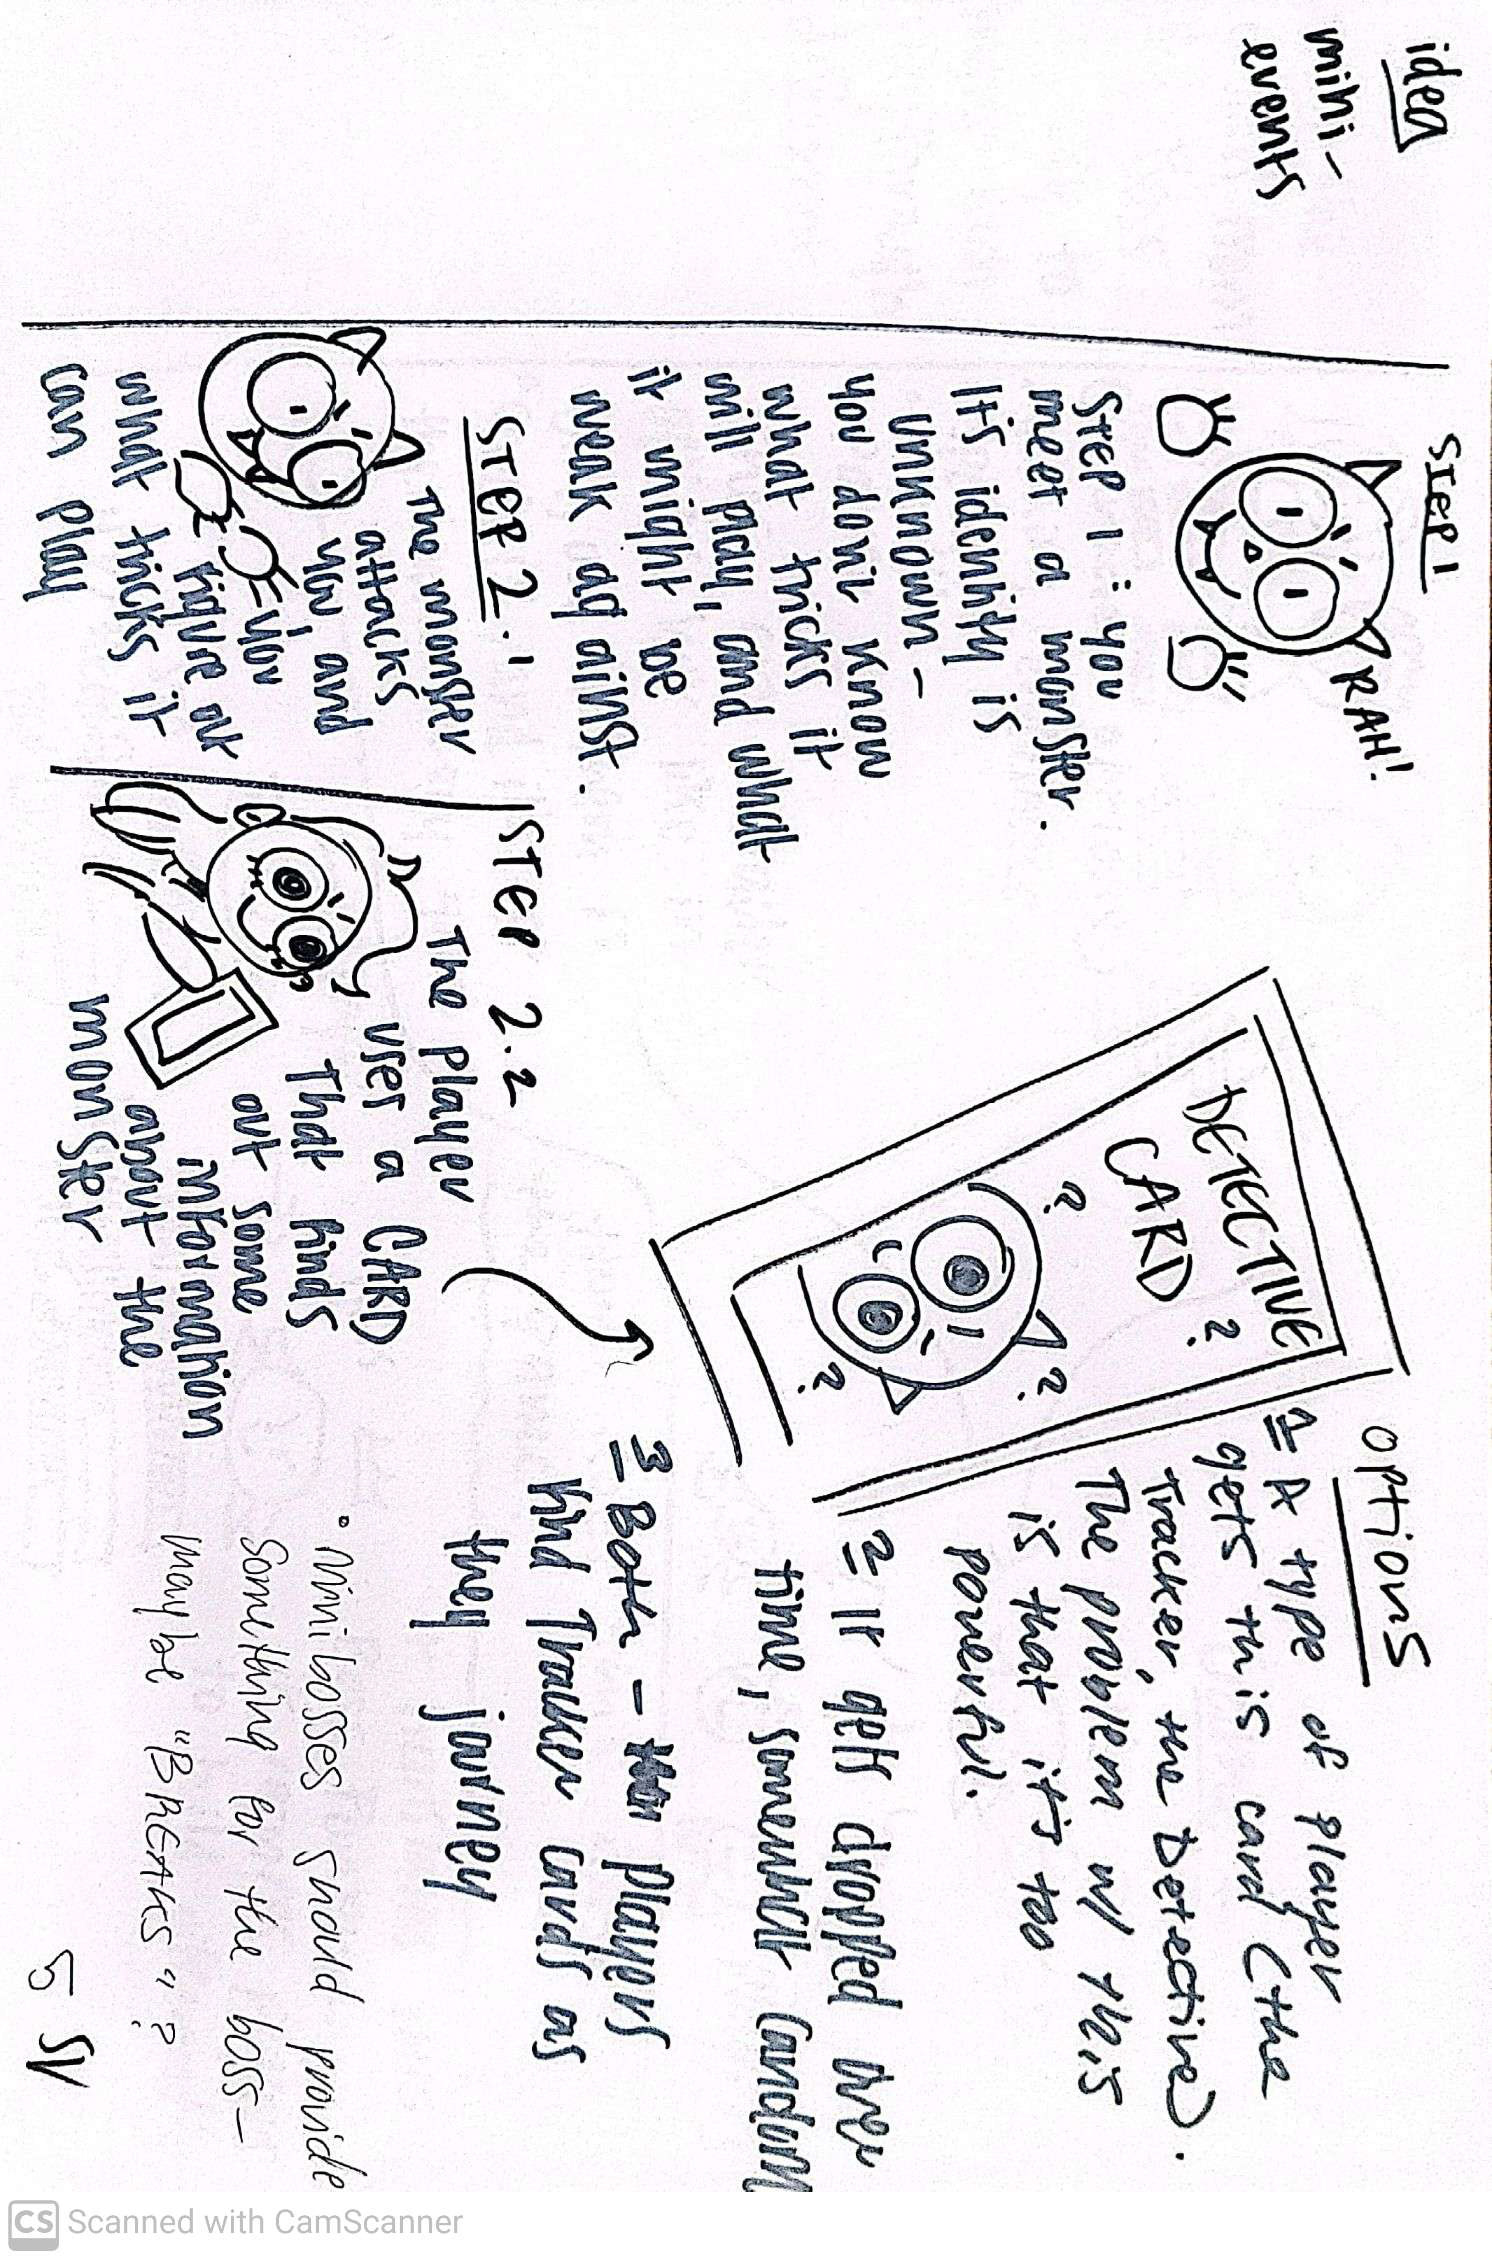 idea
mini-
events
STEP 1
RAH!
Step 1: you
meet a monster.
It's identity is
unknown -
you don't know
what tricks it
will play, and what
it might be
weak against.
STEP 2.1
The monster
attacks
you and
you
figure out
what tricks it
can play
STEP 2.2
The player
uses a CARD
That finds
out some
information
about the
monster
DETECTIVE
CARD ?
? ?
?
OPTIONS
A type of player
gets this card (the
Tracker, the Detective).
The problem w/ this
is that it's too
powerful.
2 It gets dropped over
time, somewhat random
3 Both - players
find Tracker cards as
they journey
• Mini bosses should provide
something for the boss -
maybe "BREAKS"?